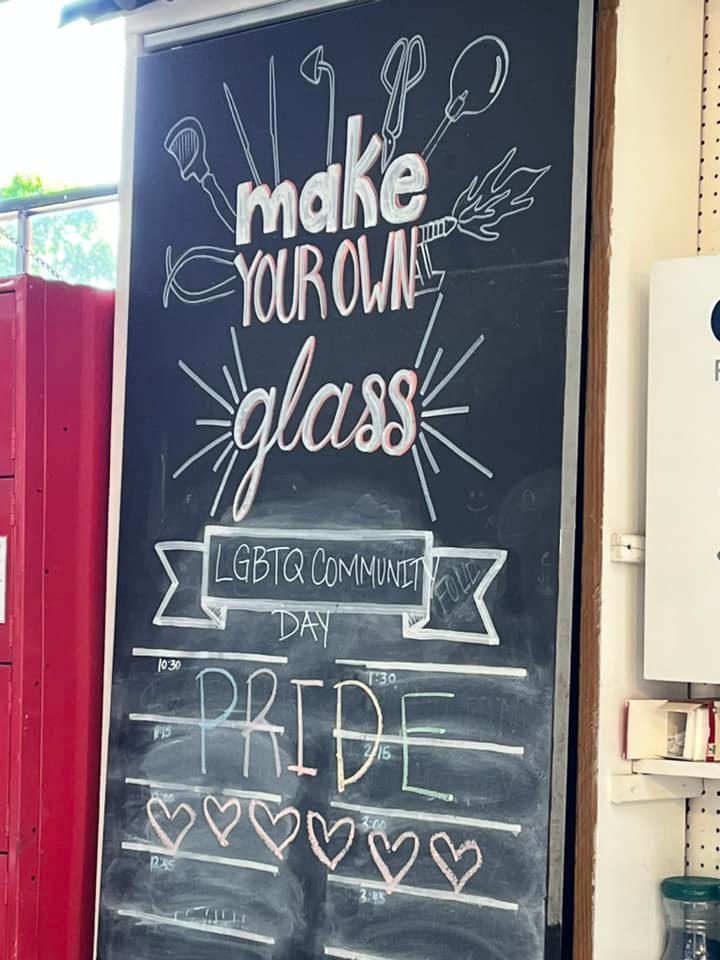 make
YOUR OWN
glass
LGBTQ COMMUNITY
DAY
10:30 1:30
PRIDE
11:15 2:15
3:00
12:45
3:45